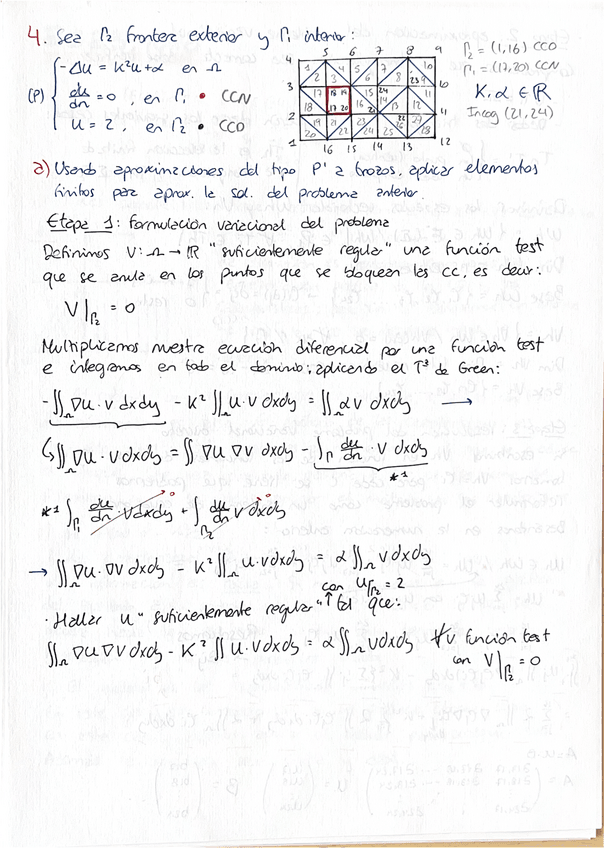 4. Sea Γ2 frontera exterior y Γ1 interior:
(P) { -Δu = K²u+α en Ω
du/dn = 0, en Γ1 • CCN
u = 2, en Γ2 • CCD
5 6 7 8 9
4 3 2 1
10 11 12
16 15 14 13
Γ2 = (1,16) CCD
Γ1 = (17,20) CCN
K, α ∈ ℝ
Incog (21,24)
a) Usando aproximaciones del tipo P¹ a trozos, aplicar elementos
finitos para aprox. la sol. del problema anterior
Etapa 1: Formulación variacional del problema
Definimos V: Ω → ℝ "suficientemente regular" una función test
que se anula en los puntos que se bloquean las CC, es decir:
V|Γ2 = 0
Multiplicamos nuestra ecuación diferencial por una función test
e integramos en todo el dominio; aplicando el Tª de Green:
-∬Ω ∇u · v dxdy - K² ∬Ω u·v dxdy = ∬Ω αv dxdy →
↳ ∬Ω ∇u · v dxdy = ∬ ∇u ∇v dxdy - ∫Γ du/dn · v dxdy
*1
*1 ∫Γ1 du/dn · v dxdy + ∫Γ2 du/dn v dxdy
→ ∬Ω ∇u · ∇v dxdy - K² ∬Ω u·v dxdy = α ∬Ω v dxdy
con u|Γ2 = 2
· Hallar u "suficientemente regular" ↑ tal que:
∬Ω ∇u ∇v dxdy - K² ∬ u·v dxdy = α ∬Ω v dxdy ∀v función test
con V|Γ2 = 0